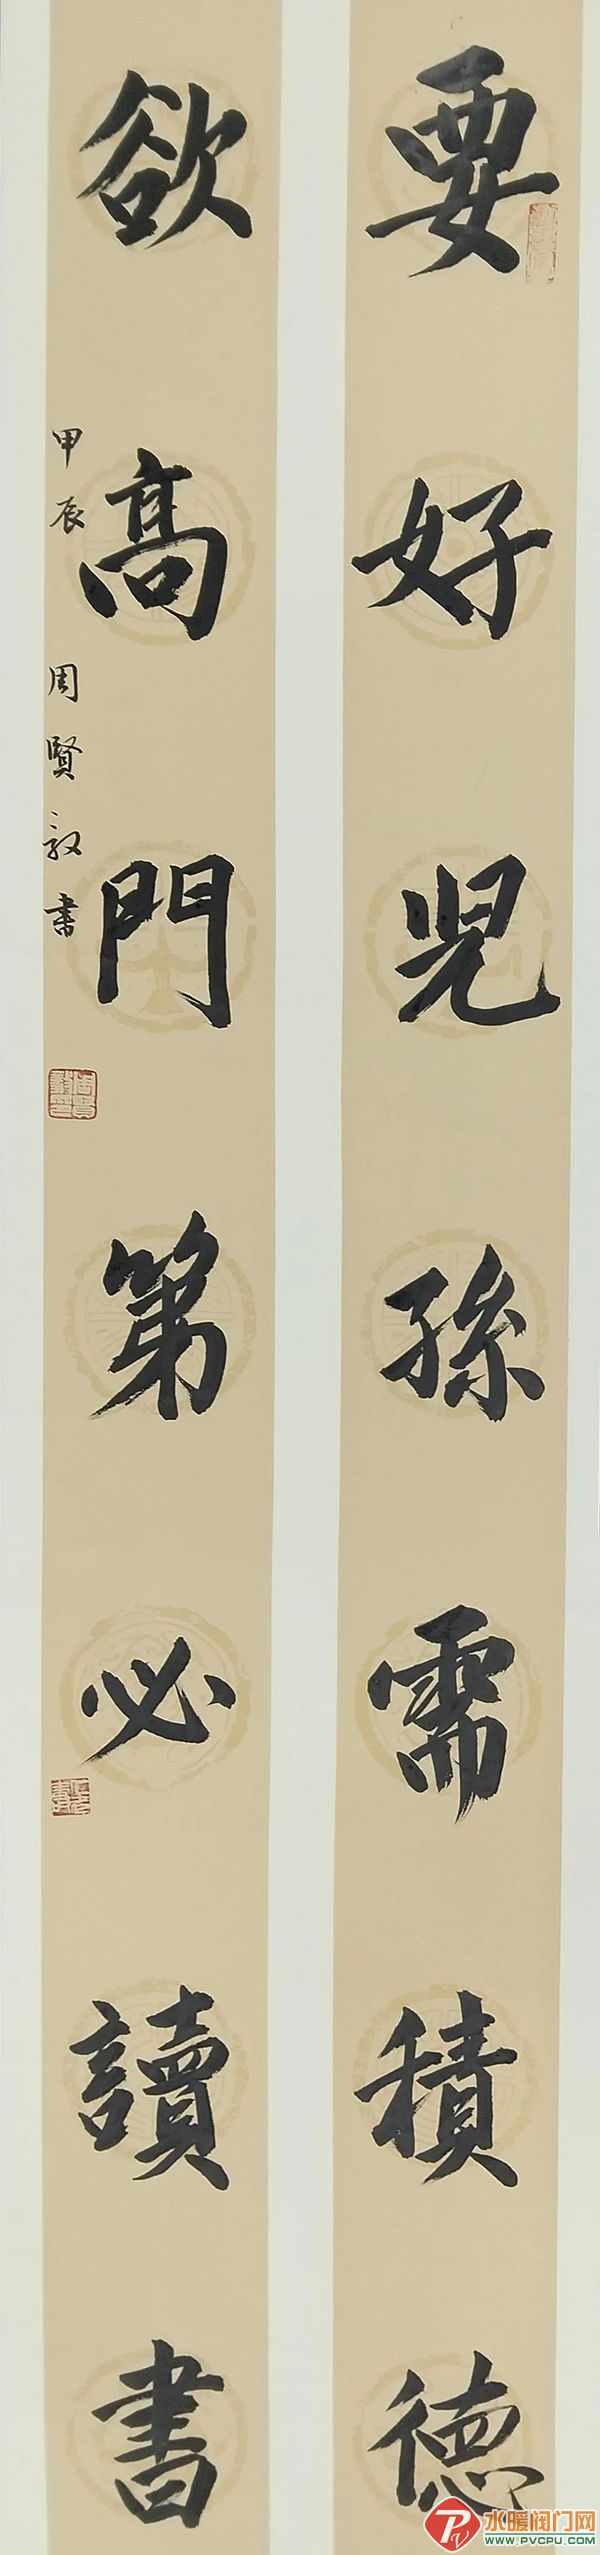 要好兒孫需積德
欲高門第必讀書
甲辰 周賢敦書
水暖阀门网
www.PVCPU.com